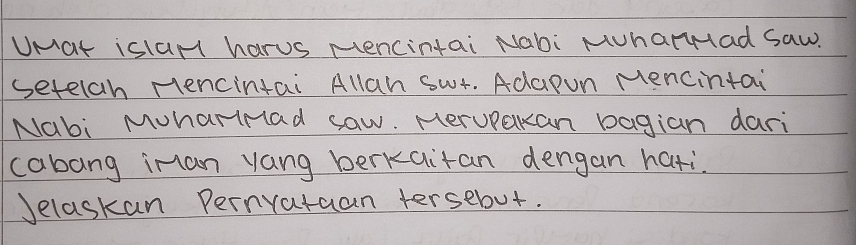 Umat islam harus mencintai Nabi Muhammad Saw.
setelah mencintai Allah swt. Adapun mencintai
Nabi Muhammad saw. merupakan bagian dari
cabang iman yang berkaitan dengan hati.
Jelaskan Pernyataan tersebut.